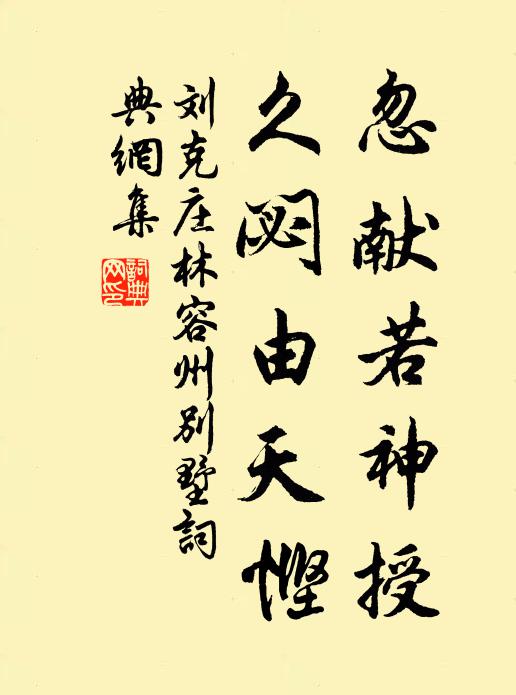 忽献若神授
久閟由天悭
刘克庄林容州别墅詞
典網集
詞典
网印